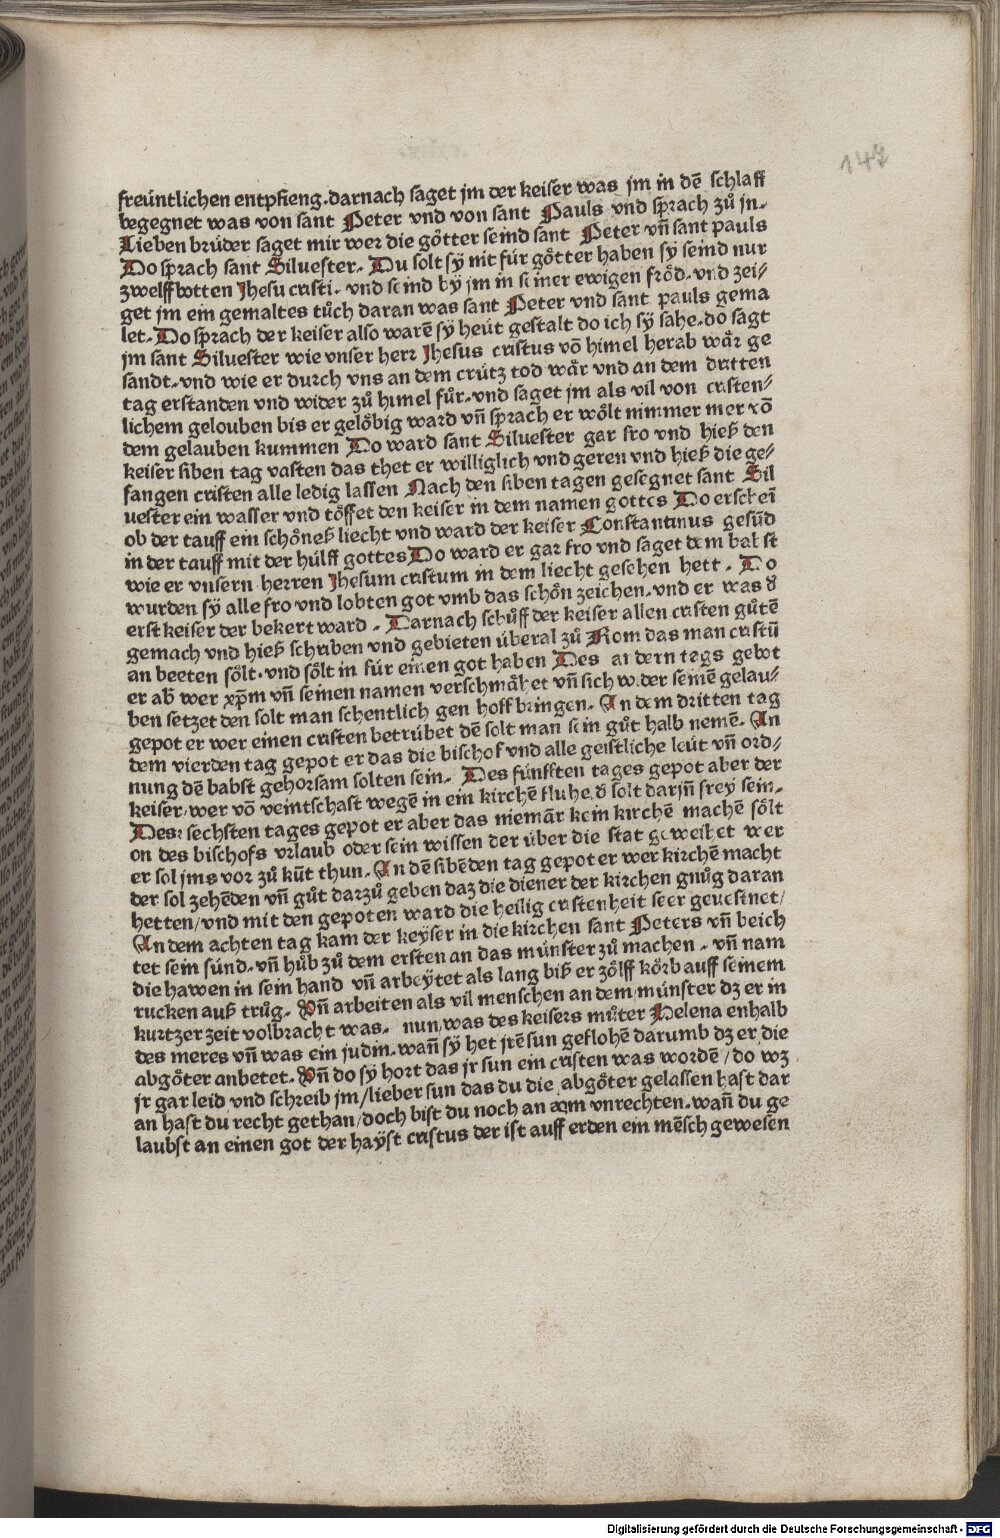 147
freüntlichen entpfieng. darnach saget jm der keiser was jm in dē schlaff
begegnet was von sant Peter vnd von sant Pauls vnd sprach zů jn.
Lieben brüder saget mir wer die götter seind sant Peter vñ sant pauls
Do sprach sant Siluester. Du solt sÿ nit für götter haben sÿ seind nur
zwelffbotten Jhesu cristi. vnd seind bÿ jm in seiner ewigen fröd. vnd zei/
get jm ein gemaltes tůch daran was sant Peter vnd sant pauls gema
let. Do sprach der keiser also warē sÿ heüt gestalt do ich sÿ sahe. do sagt
jm sant Siluester wie vnser herr Jhesus cristus vō himel herab wår ge
sandt. vnd wie er durch vns an dem crütz tod wår vnd an dem dritten
tag erstanden vnd wider zů himel fůr. vnd saget jm als vil von cristen/
lichem gelouben bis er gelöbig ward vñ sprach er wölt nimmer mer vō
dem gelauben kummen Do ward sant Siluester gar fro vnd hieß den
keiser siben tag vasten das thet er williglich vnd geren vnd hieß die ge/
fangen cristen alle ledig lassen Nach den siben tagen gesegnet sant Sil
uester ein wasser vnd töffet den keiser in dem namen gottes Do erscheī
ob der tauff ein schönes liecht vnd ward der keiser Constantinus gesūd
in der tauff mit der hülff gottes Do ward er gar fro vnd saget dem babst
wie er vnsern herren Jhesum cristum in dem liecht gesehen hett. Do
wurden sÿ alle fro vnd lobten got vmb das schön zeichen. vnd er was d̄
erst keiser der bekert ward. Darnach schůff der keiser allen cristen gůtē
gemach vnd hieß schriben vnd gebieten überal zů Rom das man cristū
an beeten sölt. vnd sölt in für einen got haben Des andern tags gebot
er ab̄ wer xp̄m vñ seinen namen verschmåhet vñ sich wider seinē gelau/
ben setzet den solt man schentlich gen hoff bringen. An dem dritten tag
gepot er wer einen cristen betrübet dē solt man sein gůt halb nemē. An
dem vierden tag gepot er das die bischof vnd alle geistliche leüt vñ ord/
nung dē babst gehorsam solten sein. Des fünfften tages gepot aber der
keiser, wer vō veintschaft wegē in ein kirchē fluhe d̄ solt darjn̄ frey sein.
Des sechsten tages gepot er aber das niemār kein kirchē machē sölt
on des bischofs vrlaub oder sein wissen der über die stat geweihet wer
er sol jms vor zů küt thun. An dē sibēden tag gepot er wer kirchē macht
der sol zehēden vñ gůt darzů geben daz die diener der kirchen gnůg daran
hetten/ vnd mit den gepoten ward die heilig cristenheit seer geuestnet/
An dem achten tag kam der keyser in die kirchen sant Peters vñ beich
tet sein sünd. vñ hůb zů dem ersten an das münster zů machen. vñ nam
die hawen in sein hand vñ arbeÿtet als lang biß er zölff körb auff seinem
rucken auß trůg. Vñ arbeiten als vil menschen an dem münster dz er in
kurtzer zeit volbracht was. nun was des keisers můter Helena enhalb
des meres vñ was ein judin. wañ sÿ het jrē sun geflohē darumb dz er die
abgöter anbetet. Vñ do sÿ hort das jr sun ein cristen was wordē/ do wz
jr gar leid vnd schreib jm/ lieber sun das du die abgöter gelassen hast dar
an hast du recht gethan/ doch bist du noch an eim vnrechten. wañ du ge
laubst an einen got der haÿst cristus der ist auff erden ein mēsch gewesen
Digitalisierung gefördert durch die Deutsche Forschungsgemeinschaft - DFG